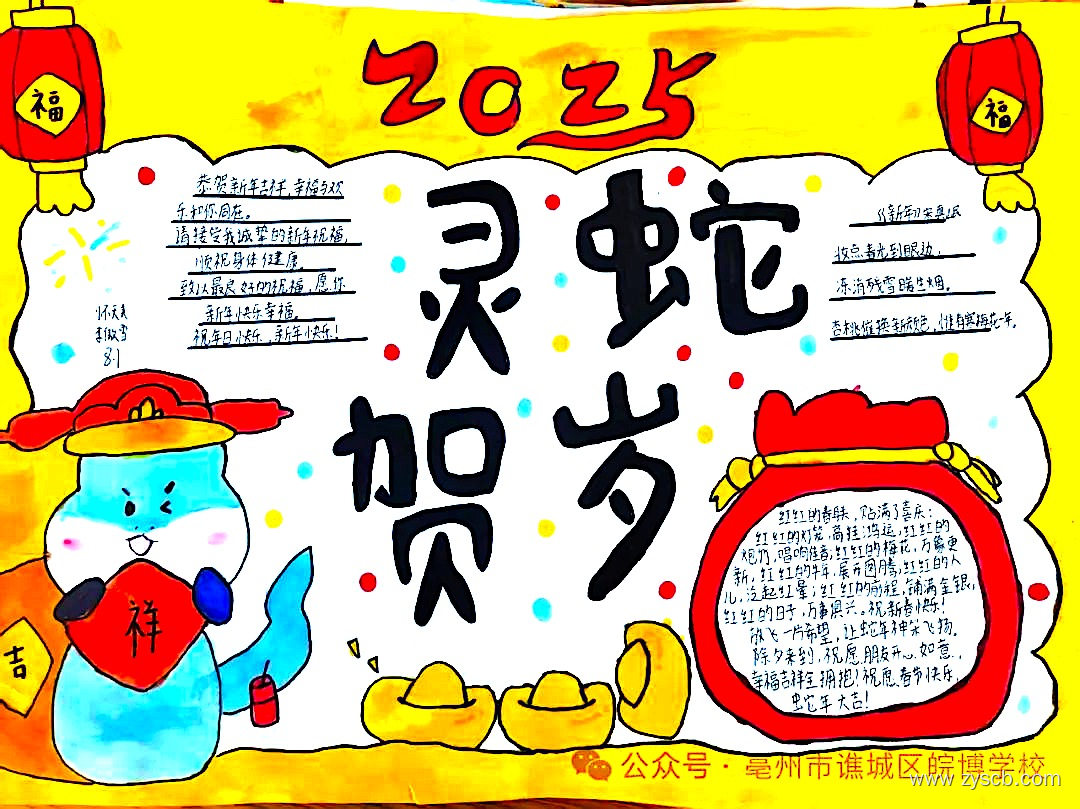 2025
福
福
灵蛇
贺岁
恭贺新年吉祥,幸福与欢
乐和你同在。
请接受我诚挚的新年祝福,
顺祝身体健康。
致以最良好的祝福,愿你
新年快乐幸福。
祝年日快乐,新年快乐!
8.1
《新年》宋真
妆点春光到眼边,
冻消残雪暖生烟。
杏桃催换新颜色,惟有寒梅花一年。
祥
吉
红红的春联,贴满了喜乐;
红红的灯笼,高挂鸿运,红红的
炮竹,唱响佳音;红红的梅花,万象更
新,红红的牛年,展开图腾;红红的人
儿,泛起红晕;红红的前程,铺满金银,
红红的日子,万事俱兴。祝新春快乐!
放飞一片希望,让蛇年神采飞扬。
除夕来到,祝愿朋友开心如意,
幸福吉祥全拥抱!祝愿春节快乐,
蛇年大吉!
公众号·亳州市谯城区皖博学校
www.zyscb.com